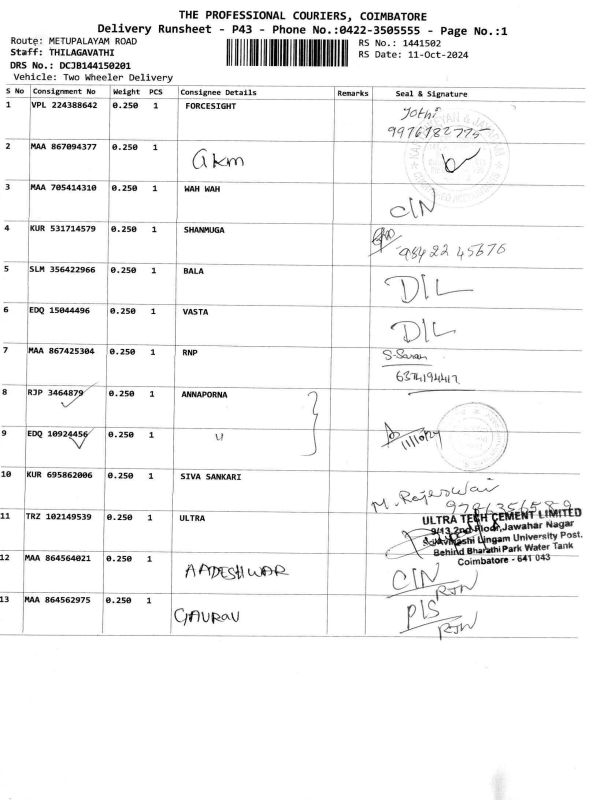 THE PROFESSIONAL COURIERS, COIMBATORE
Delivery Runsheet - P43 - Phone No.:0422-3505555 - Page No.:1
Route: METUPALAYAM ROAD
Staff: THILAGAVATHI
DRS No.: DCJB144150201
Vehicle: Two Wheeler Delivery
RS No.: 1441502
RS Date: 11-Oct-2024
S No Consignment No Weight PCS Consignee Details Remarks Seal & Signature
1 VPL 224388642 0.250 1 FORCESIGHT Jothi
9976782775
2 MAA 867094377 0.250 1 akm
3 MAA 705414310 0.250 1 WAH WAH C/N
4 KUR 531714579 0.250 1 SHANMUGA
98422 45676
5 SLM 356422966 0.250 1 BALA D/L
6 EDQ 15044496 0.250 1 VASTA D/L
7 MAA 867425304 0.250 1 RNP S-Saran
8 RJP 3464879 0.250 1 ANNAPORNA
9 EDQ 10924456 0.250 1 11 11/10/24
10 KUR 695862006 0.250 1 SIVA SANKARI M. Rajeswari
11 TRZ 102149539 0.250 1 ULTRA ULTRA TECH CEMENT LIMITED
9/13 2nd Floor, Jawahar Nagar
Avinashi Lingam University Post.
Behind Bharathi Park Water Tank
Coimbatore - 641 043
12 MAA 864564021 0.250 1 AADESHWAR C/N
RJN
13 MAA 864562975 0.250 1 GAURAV P/S
RJN